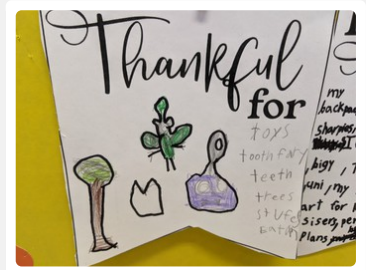 Thankful
for
toys
tooth fAy
teeth
trees
stufe
my
backpack
sharpies,
bigy,
uni, my
art for
sisers, per
Plans,